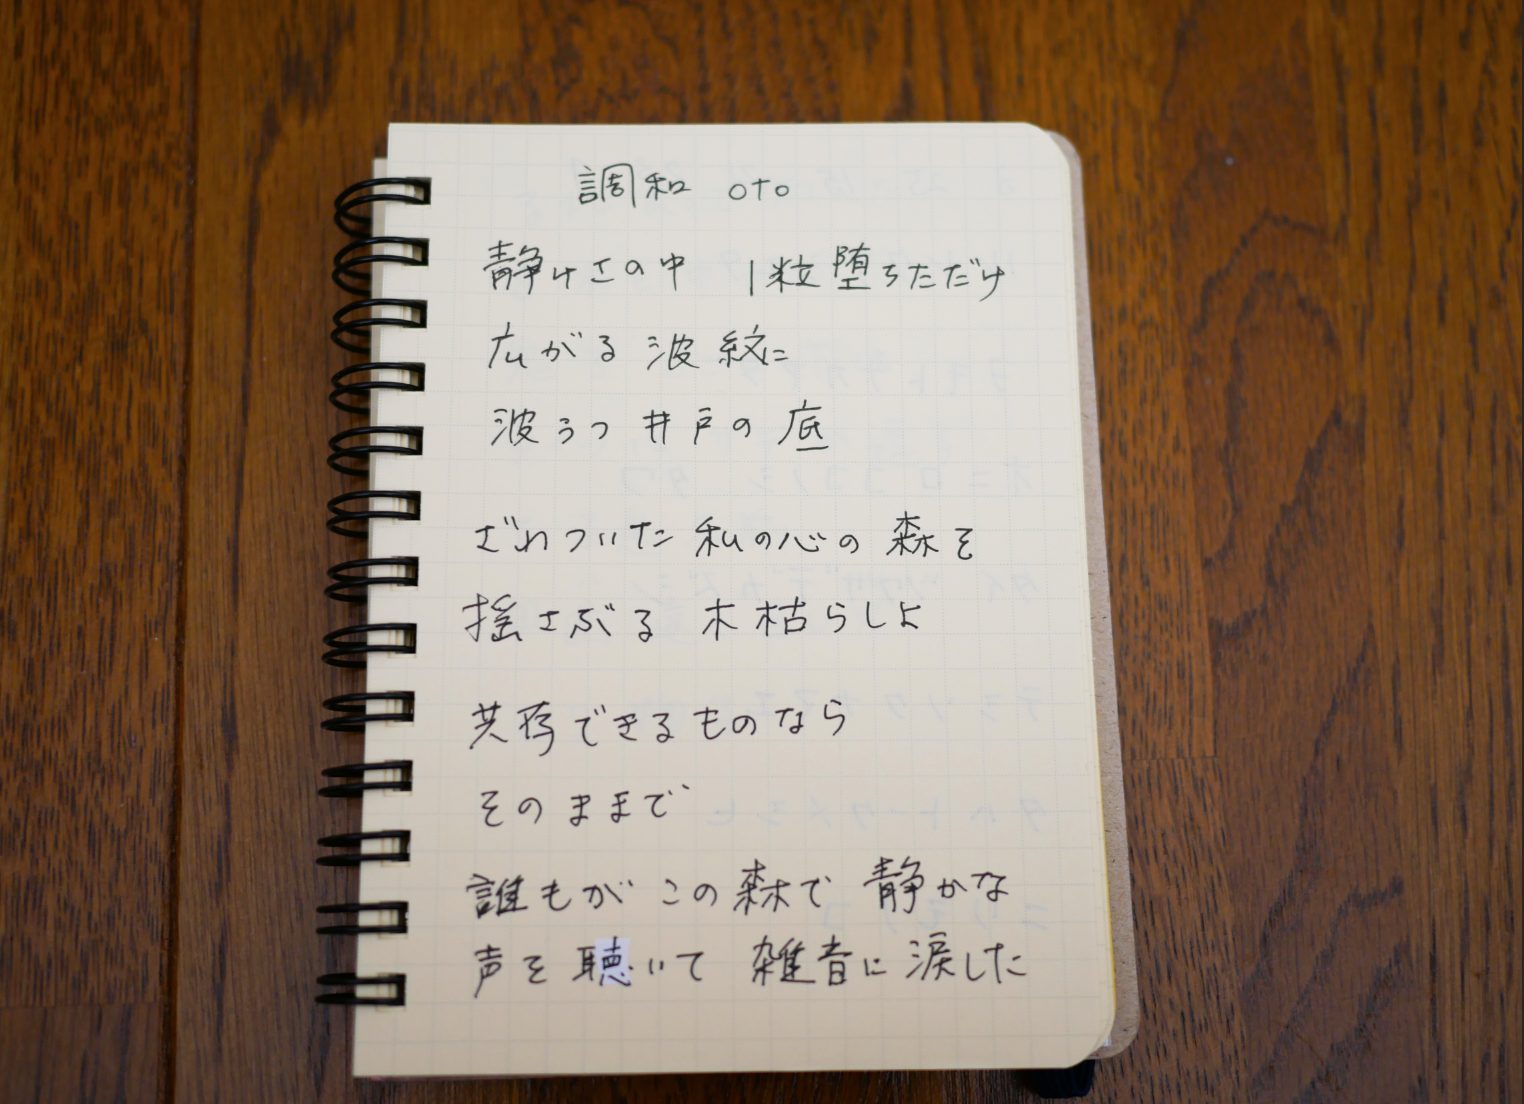 調和 oto
静けさの中 1粒堕ちただけ
広がる波紋に
波うつ井戸の底
ざわついた私の心の森を
揺さぶる木枯らしよ
共存できるものなら
そのままで
誰もがこの森で静かな
声を聴いて 雑音に涙した